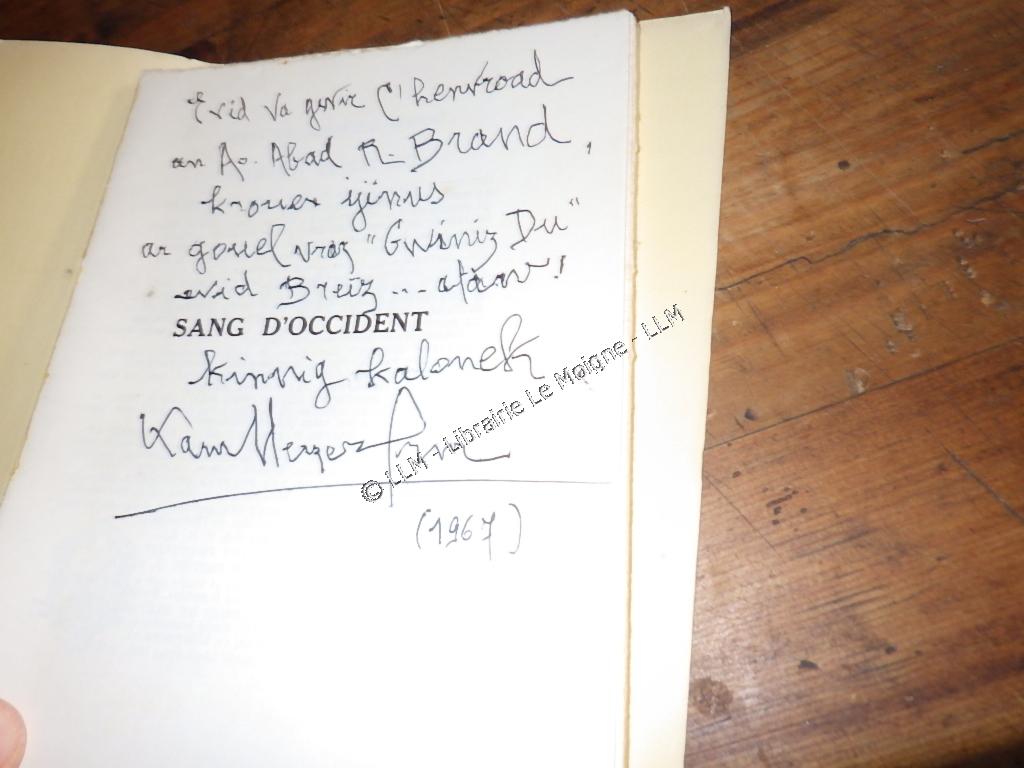 Evid va gwir C'henvroad
an Ao. Abad R. Brand,
krouer ijinus
ar gouel vraz "Gwiniz Du"
evid Breiz ... atav!
SANG D'OCCIDENT
kinnig kalonek
(1967)
© LLM - Librairie Le Moigne - LLM